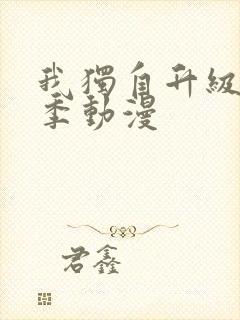 我獨自升級
季動漫
君鑫